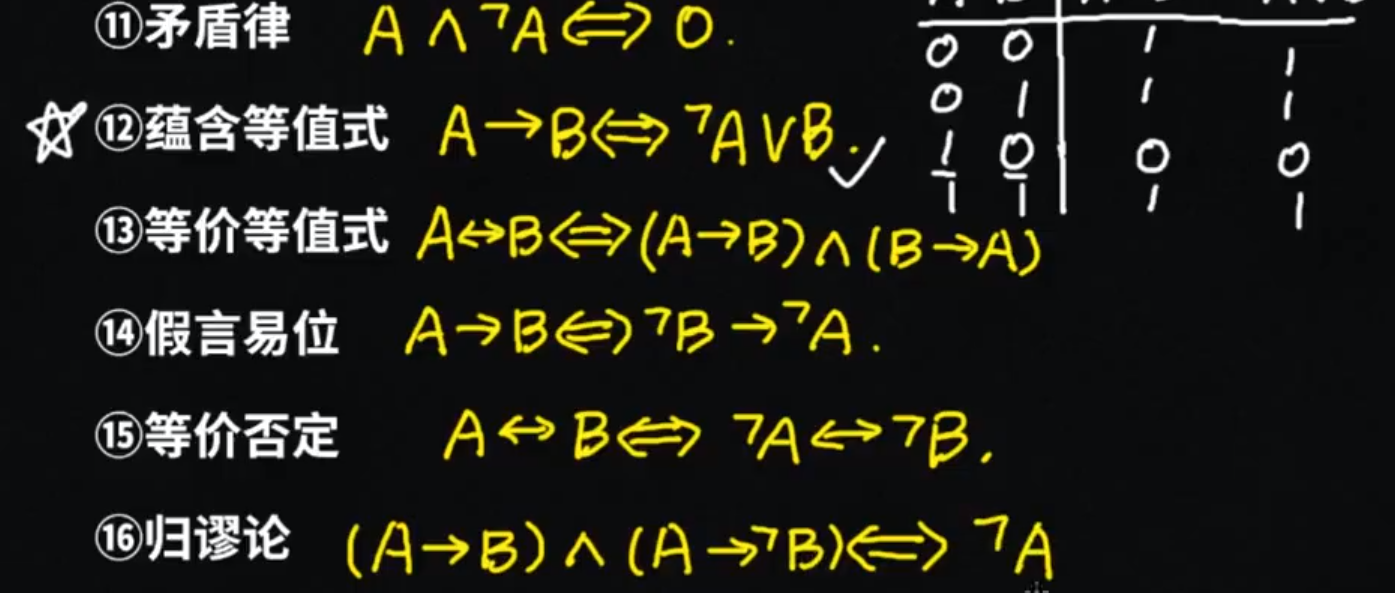 ⑪矛盾律 A∧¬A⇔0.
⑫蕴含等值式 A→B⇔¬A∨B.
⑬等价等值式 A↔B⇔(A→B)∧(B→A)
⑭假言易位 A→B⇔¬B→¬A.
⑮等价否定 A↔B⇔¬A↔¬B.
⑯归谬论 (A→B)∧(A→¬B)⇔¬A
0 0 1 1
0 1 1 1
1 0 0 0
1 1 1 1